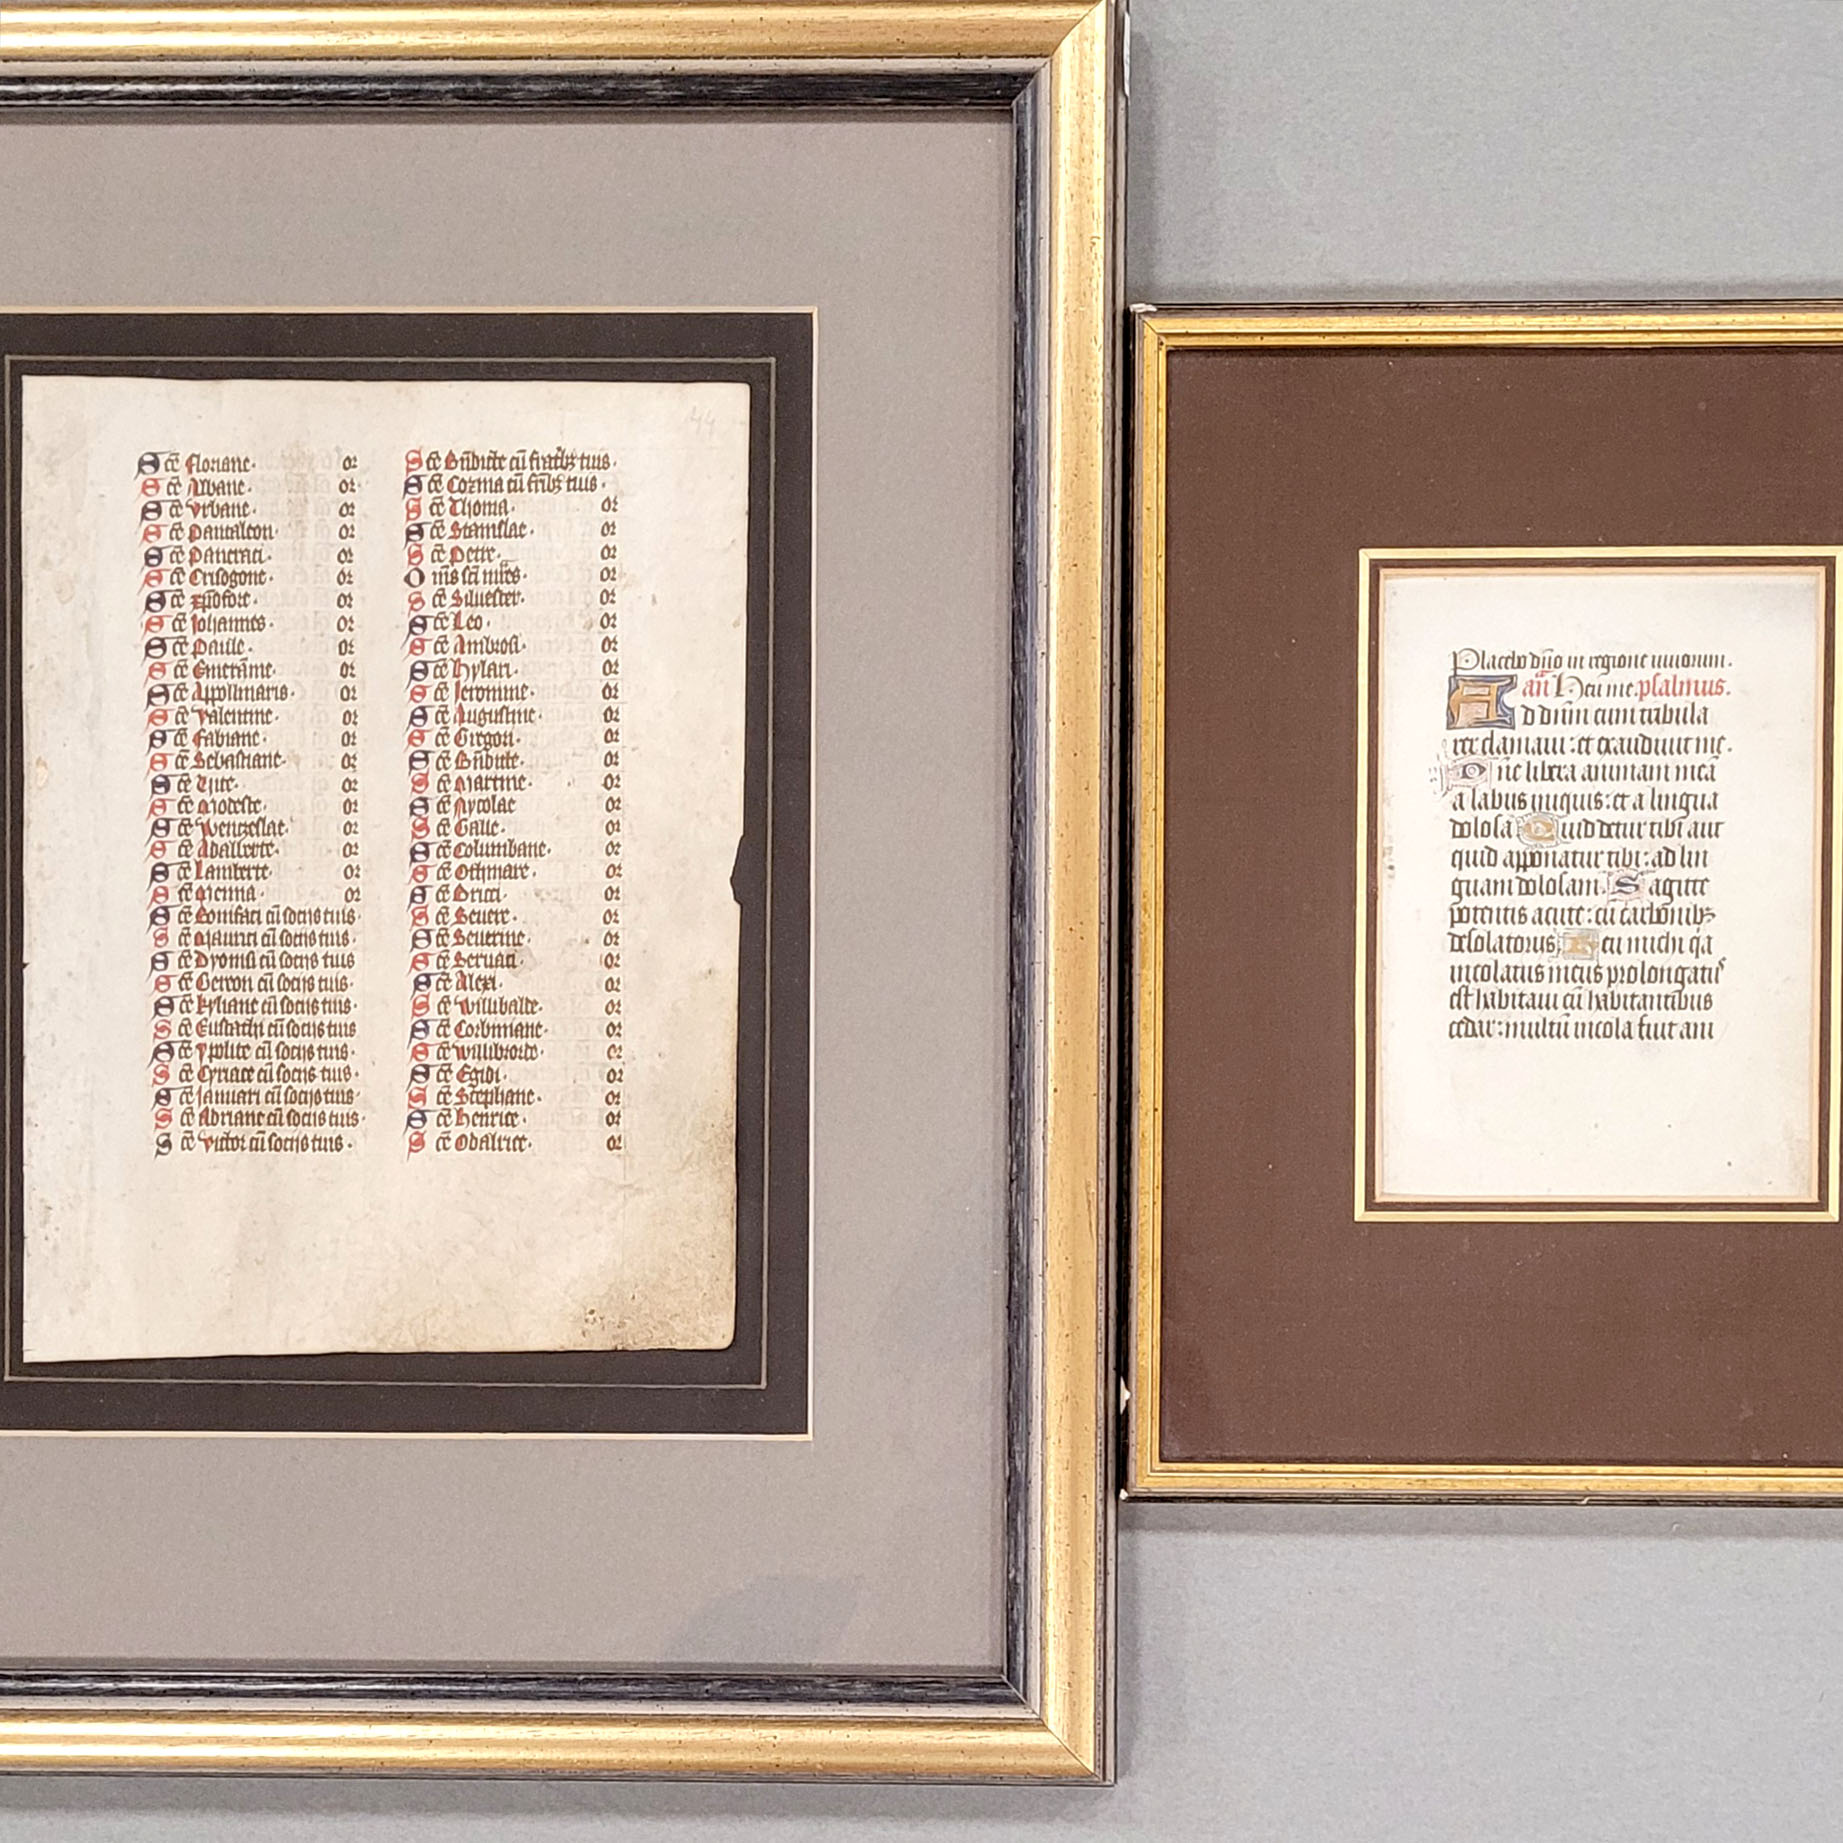 44
S cē Floriane · or
S cē Albane · or
S cē Vrbane · or
S cē Pantaleon · or
S cē Pancraci · or
S cē Crisogone · or
S cē xpofore · or
S cē Johannes · or
S cē Paule · or
S cē Emeram̄e · or
S cē Appollinaris · or
S cē Valentine · or
S cē Fabiane · or
S cē Sebastiane · or
S cē Vite · or
S cē Modeste · or
S cē Wenzeslae · or
S cē Adalberte · or
S cē Lamberte · or
S cē Menna · or
S cē Bonifaci cū socijs tuis ·
S cē Maurici cū socijs tuis ·
S cē Dyonisi cū socijs tuis
S cē Gereon cū socijs tuis ·
S cē Kyliane cū socijs tuis ·
S cē Eustachi cū socijs tuis
S cē Ypolite cū socijs tuis ·
S cē Cyriace cū socijs tuis ·
S cē Januari cū socijs tuis ·
S cē Adriane cū socijs tuis ·
S cē Victor cū socijs tuis ·
S cē Bn̄dicte cū fratibꝫ tuis ·
S cē Cozma cū frībꝫ tuis ·
S cē Thoma · or
S cē Stanislae · or
S cē Petre · or
O m̄s sc̄i mr̄es · or
S cē Siluester · or
S cē Leo · or
S cē Ambrosi · or
S cē Hylari · or
S cē Jeronime · or
S cē Augustine · or
S cē Gregori · or
S cē Bn̄dicte · or
S cē Martine · or
S cē Nycolae or
S cē Galle · or
S cē Columbane · or
S cē Othmare · or
S cē Bricci · or
S cē Seuere · or
S cē Seuerine · or
S cē Seruaci · or
S cē Alexi · or
S cē Willibalde · or
S cē Corbiniane · or
S cē Willibrorde · or
S cē Egidi · or
S cē Stephane · or
S cē Henrice · or
S cē Odalrice · or
Placebo dn̄o in regione uiuorum .
an̄ Heu me . psalmus .
A d dn̄m cum tribula
rer clamaui : et exaudiuit me .
D ne libera animam meā
a labiis iniquis : et a lingua
dolosa Quid detur tibi aut
quid apponatur tibi : ad lin
guam dolosam . Sagitte
potentis acute : cū carbonibꝫ
desolatoriis . Heu michi q̄a
incolatus meus prolongatꝰ
est habitaui cū habitantibus
cedar : multū incola fuit ani